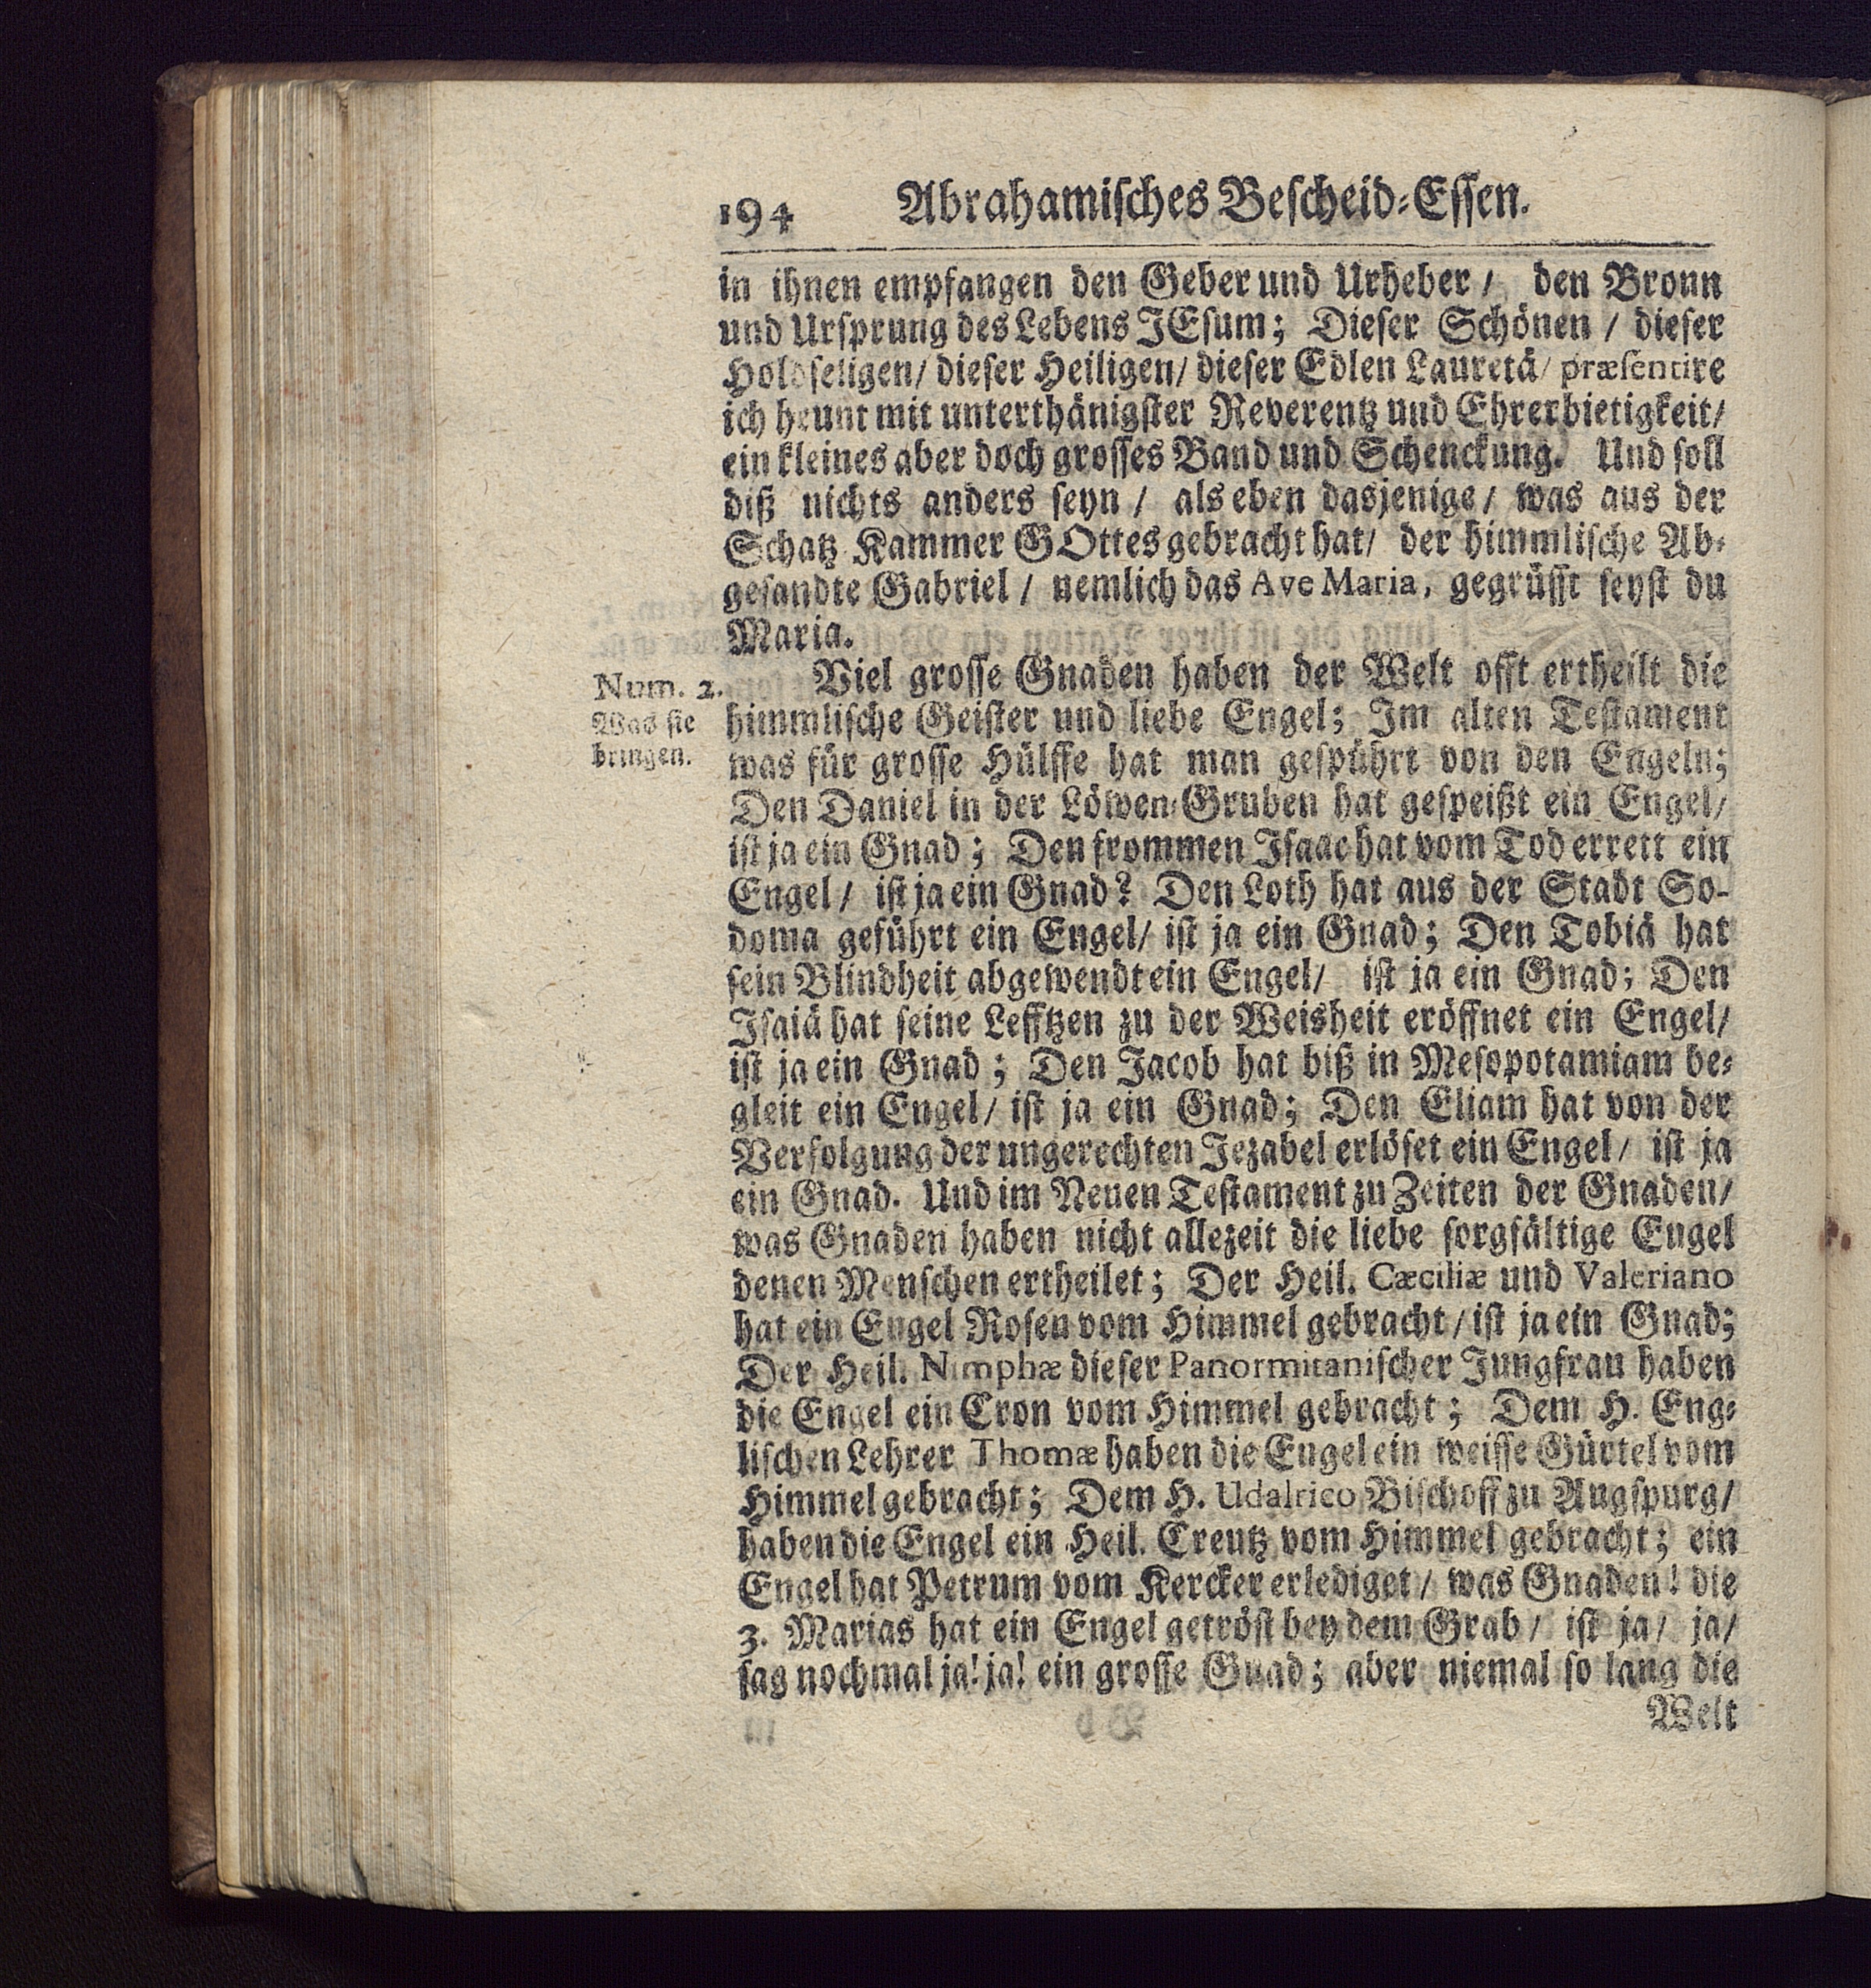 194 Abrahamisches Bescheid-Essen.
in ihnen empfangen den Geber und Urheber / den Bronn
und Ursprung des Lebens JEsum; Dieser Schönen / dieser
Holdseligen / dieser Heiligen / dieser Edlen Lauretä / præsentire
ich heunt mit unterthänigster Reverentz und Ehrerbietigkeit /
ein kleines aber doch grosses Band und Schenckung. Und soll
diß nichts anders seyn / als eben dasjenige / was aus der
Schatz-Kammer GOttes gebracht hat / der himmlische Ab-
gesandte Gabriel / nemlich das Ave Maria, gegrüsst seyst du
Maria.
Num. 2.
Was sie
bringen.
Viel grosse Gnaden haben der Welt offt ertheilt die
himmlische Geister und liebe Engel; Im alten Testament
was für grosse Hülffe hat man gespührt von den Engeln;
Den Daniel in der Löwen-Gruben hat gespeißt ein Engel /
ist ja ein Gnad; Den frommen Isaac hat vom Tod errett ein
Engel / ist ja ein Gnad? Den Loth hat aus der Stadt So-
doma geführt ein Engel / ist ja ein Gnad; Den Tobiä hat
sein Blindheit abgewendt ein Engel / ist ja ein Gnad; Den
Isaiä hat seine Lefftzen zu der Weisheit eröffnet ein Engel /
ist ja ein Gnad; Den Jacob hat biß in Mesopotamiam be-
gleit ein Engel / ist ja ein Gnad; Den Eliam hat von der
Verfolgung der ungerechten Jezabel erlöset ein Engel / ist ja
ein Gnad. Und im Neuen Testament zu Zeiten der Gnaden /
was Gnaden haben nicht allezeit die liebe sorgfältige Engel
denen Menschen ertheilet; Der Heil. Cæciliæ und Valeriano
hat ein Engel Rosen vom Himmel gebracht / ist ja ein Gnad;
Der Heil. Nimphæ dieser Panormitanischer Jungfrau haben
die Engel ein Cron vom Himmel gebracht; Dem H. Eng-
lischen Lehrer Thomæ haben die Engel ein weisse Gürtel vom
Himmel gebracht; Dem H. Udalrico Bischoff zu Augspurg /
haben die Engel ein Heil. Creutz vom Himmel gebracht; ein
Engel hat Petrum vom Kercker erlediget / was Gnaden! die
3. Marias hat ein Engel getröst bey dem Grab / ist ja / ja /
sag nochmal ja! ja! ein grosse Gnad; aber niemal so lang die
Welt